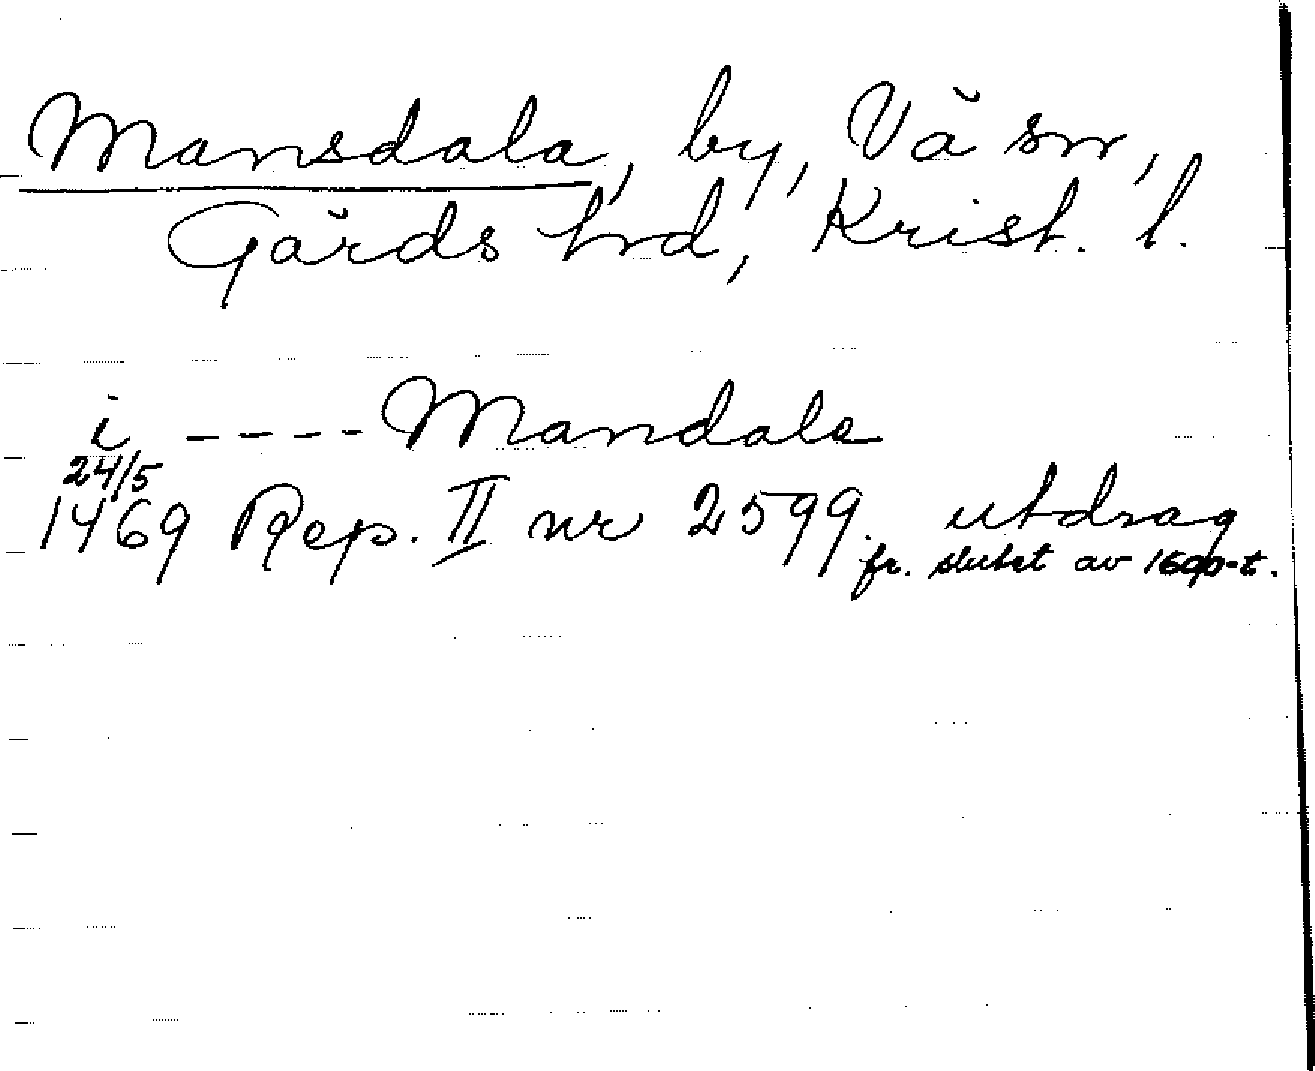 Mansdala, by, Vå sn,
Gärds hrd, Krist. l.
i ---- Mandale
24/5
1469 Rep. II nr 2599. utdrag
fr. slutet av 1600-t.